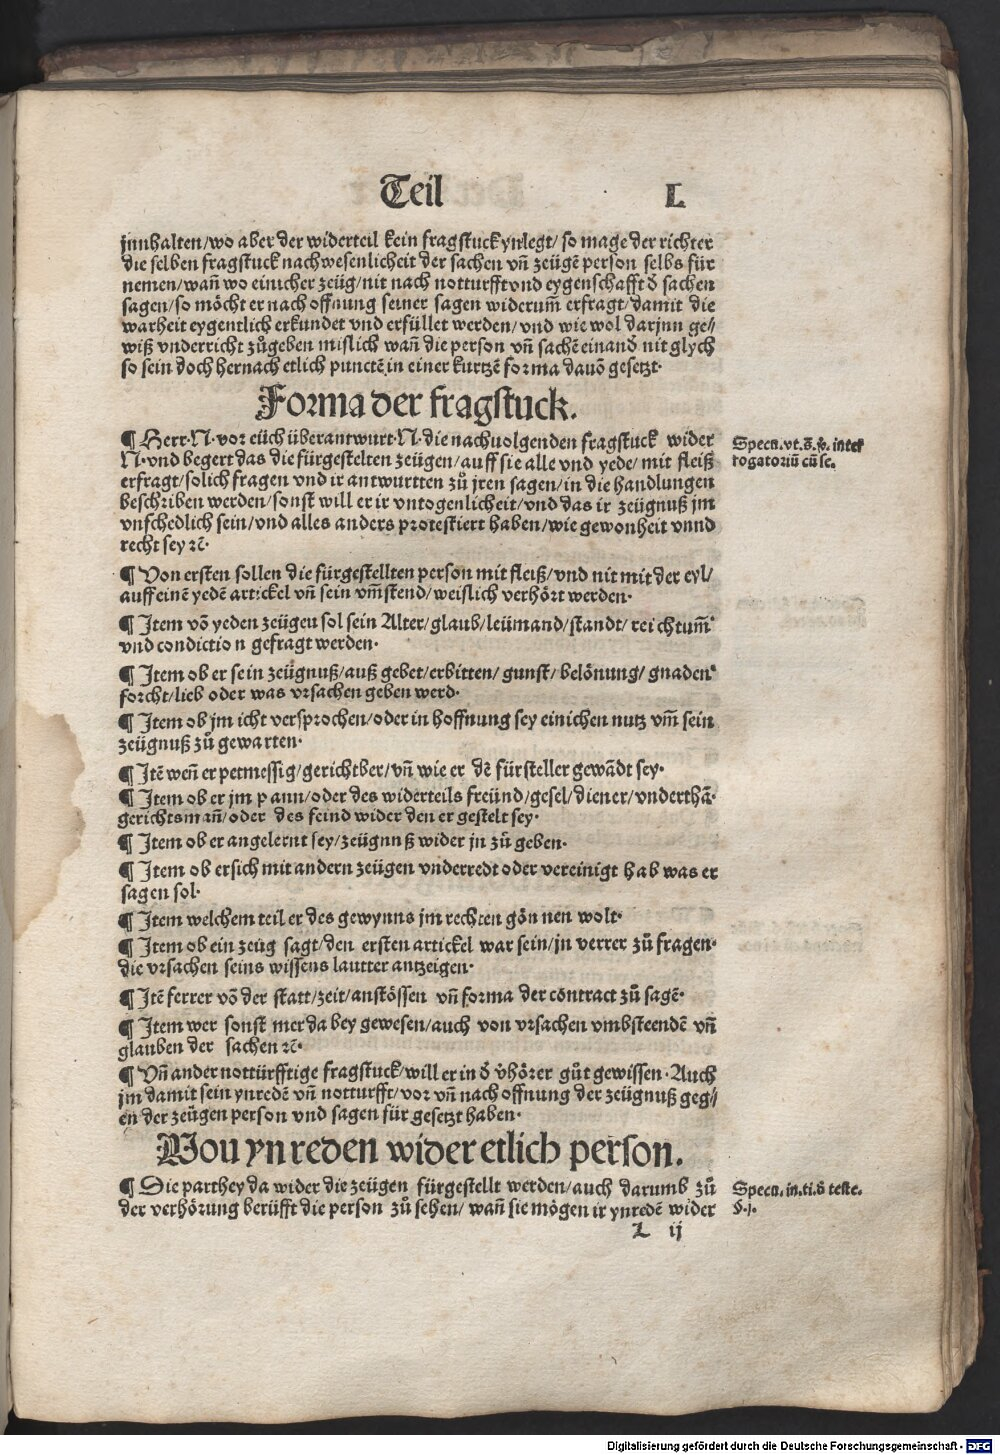 Teil L
jnnhalten/wo aber der widerteil kein fragstuck ynlegt/ so mage der richter
die selben fragstuck nach wesenlicheit der sachen vñ zeügẽ person selbs für
nemen/wañ wo einicher zeüg/nit nach notturfft vnd eygenschafft ď sachen
sagen/so möcht er nach offnung seiner sagen widerum̃ erfragt/damit die
warheit eygentlich erkundet vnd erfüllet werden/vnd wie wol darjnn ge⸗
wiß vnderricht zůgeben mislich wañ die person vñ sachẽ einanď nit glych
so sein doch hernach etlich punctẽ in einer kurtzẽ forma dauõ gesetzt·
Forma der fragstuck.
¶ Herr·N·vor eüch überantwurt·N·die nachuolgenden fragstuck wider
N·vnd begert das die fürgestelten zeügen/auff sie alle vnd yede/mit fleiß
erfragt/solich fragen vnd ir antwurtten zů jren sagen/in die handlungen
beschriben werden/sonst will er ir vntogenlicheit/vnd das ir zeügnuß jm
vnschedlich sein/vnd alles anders protestiert haben/wie gewonheit vnnd
recht sey ꝛc̃·
Specu.vt.s̃.ꝟ.inter
rogatoriũ cũ se.
¶ Von ersten sollen die fürgestellten person mit fleiß/vnd nit mit der eyl/
auff einẽ yedẽ artickel vñ sein vm̃stend/weislich verhört werden·
¶ Item võ yeden zeügeu sol sein Alter/glaub/leümand/standt/reichtum̃
vnd condiction gefragt werden·
¶ Item ob er sein zeügnuß/auß gebet/erbitten/gunst/belönung/gnaden
forcht/lieb oder was vrsachen geben werd·
¶ Item ob jm icht versprochen/oder in hoffnung sey einichen nutz vm̃ sein
zeügnuß zů gewarten·
¶ Itẽ weñ er petmessig/gerichtber/vñ wie er dẽ fürsteller gewãdt sey·
¶ Item ob er jm pann/oder des widerteils freünd/gesel/diener/vnderthã·
gerichtsmañ/oder des feind wider den er gestelt sey·
¶ Item ob er angelernt sey/zeügnnß wider jn zů geben·
¶ Item ob ersich mit andern zeügen vnderredt oder vereinigt hab was er
sagen sol·
¶ Item welchem teil er des gewynns jm rechten gönnen wolt·
¶ Item ob ein zeug sagt/den ersten artickel war sein/jn verrer zů fragen·
die vrsachen seins wissens lautter antzeigen·
¶ Itẽ ferrer võ der statt/zeit/anstössen vñ forma der cõntract zů sagẽ·
¶ Item wer sonst mer da bey gewesen/auch von vrsachen vmbsteendẽ vñ
glauben der sachen ꝛc̃·
¶ Vñ ander nottürfftige fragstuck/will er in ď v̉hörer gůt gewissen·Auch
jm damit sein ynredẽ vñ notturfft/vor vñ nach offnung der zeügnuß geg⸗
en der zeügen person vnd sagen für gesetzt haben·
Vou ynreden wider etlich person.
¶ Die parthey da wider die zeügen fürgestellt werden/auch darumb zů
der verhörung berüfft die person zů sehen/ wañ sie mögen ir ynredẽ wider
Specu.in.ti.ď teste.
§.j.
L ij
Digitalisierung gefördert durch die Deutsche Forschungsgemeinschaft · DFG